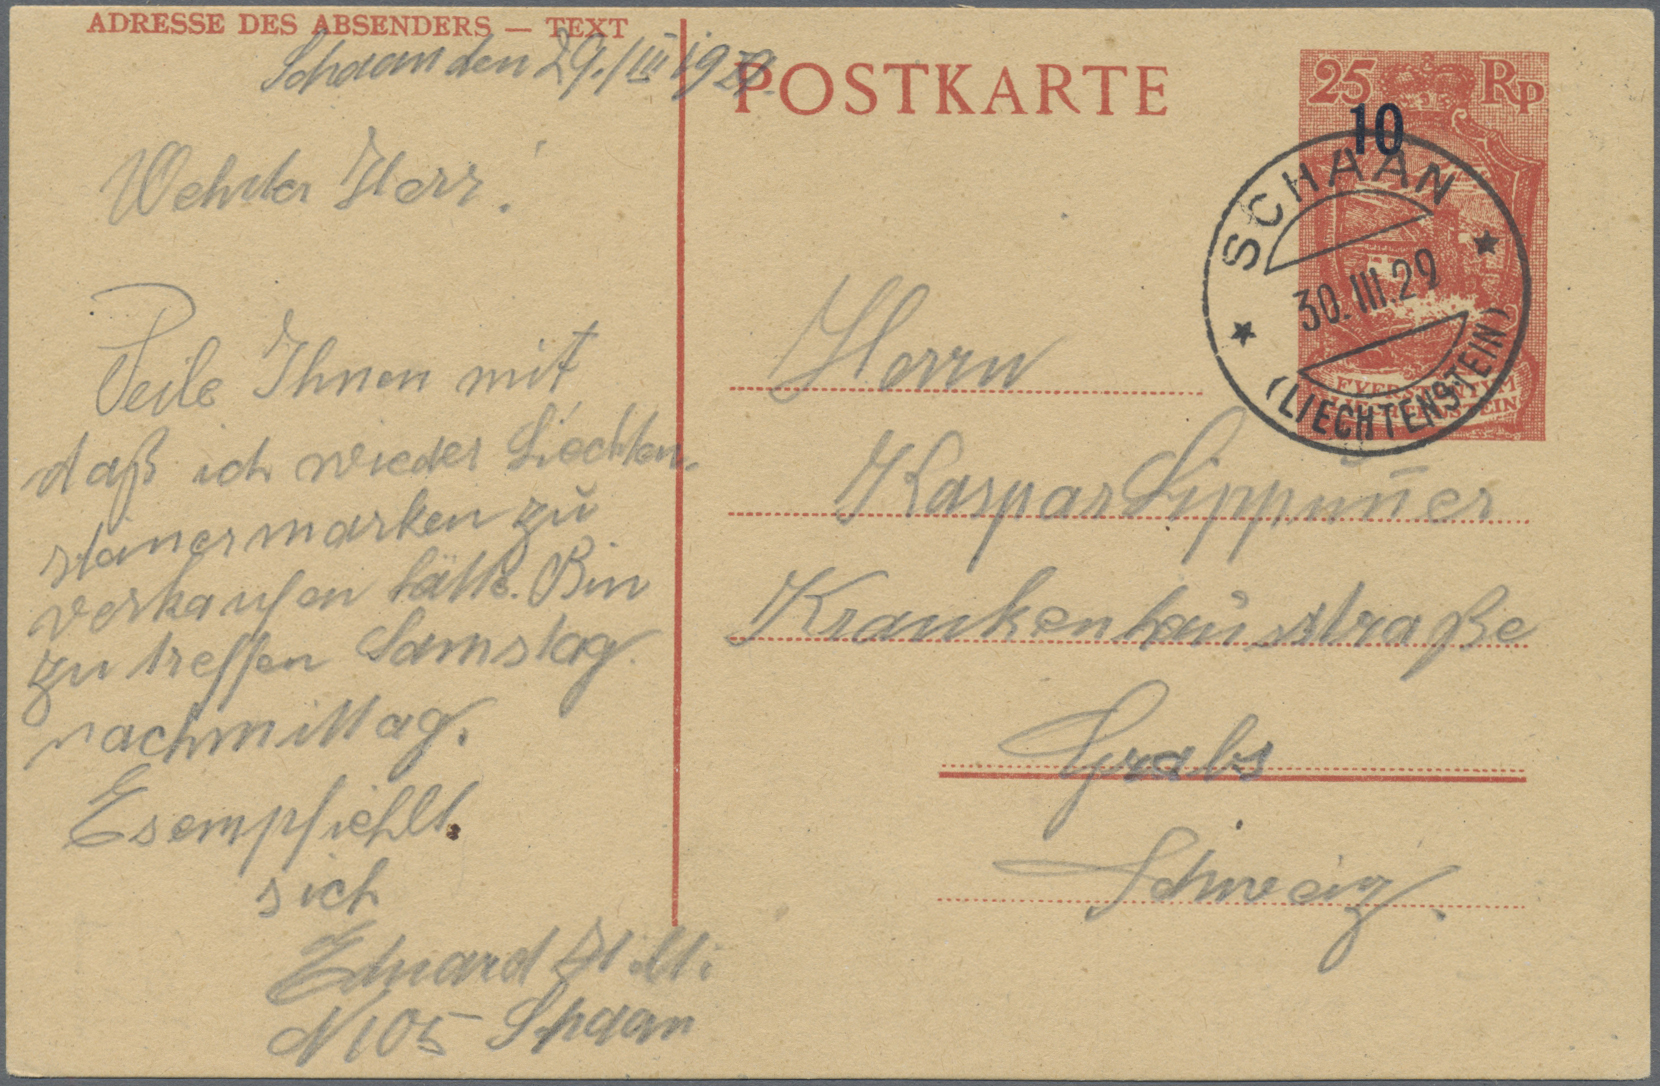 ADRESSE DES ABSENDERS — TEXT
Schaan den 29./III 1929.
Wehrter Herr!
Teile Ihnen mit
daß ich wieder Liechten-
steinermarken zu
verkaufen hätte. Bin
zu treffen Samstag
nachmittag.
Es empfiehlt
sich
Eduard Hilti.
N 105 Schaan
POSTKARTE
25 Rp
10
SCHAAN
30.III.29
(LIECHTENSTEIN)
LIECHTENSTEIN
Herrn
Kaspar Lippuner
Krankenhausstraße
Grabs
Schweiz.